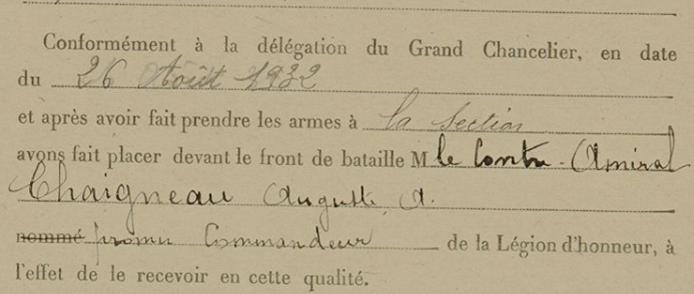 Conformément à la délégation du Grand Chancelier, en date
du 26 Août 1932
et après avoir fait prendre les armes à la Section
avons fait placer devant le front de bataille M le Contre-Amiral
Chaigneau Auguste A.
nommé promu Commandeur de la Légion d'honneur, à
l'effet de le recevoir en cette qualité.